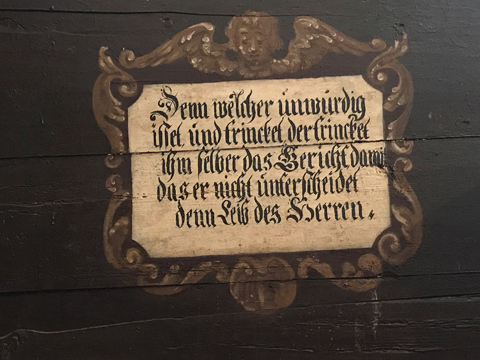 Denn welcher unwürdig
isset und trincket der trincket
ihm selber das Gericht damit
das er nicht unterscheidet
denn Leib des Herren.